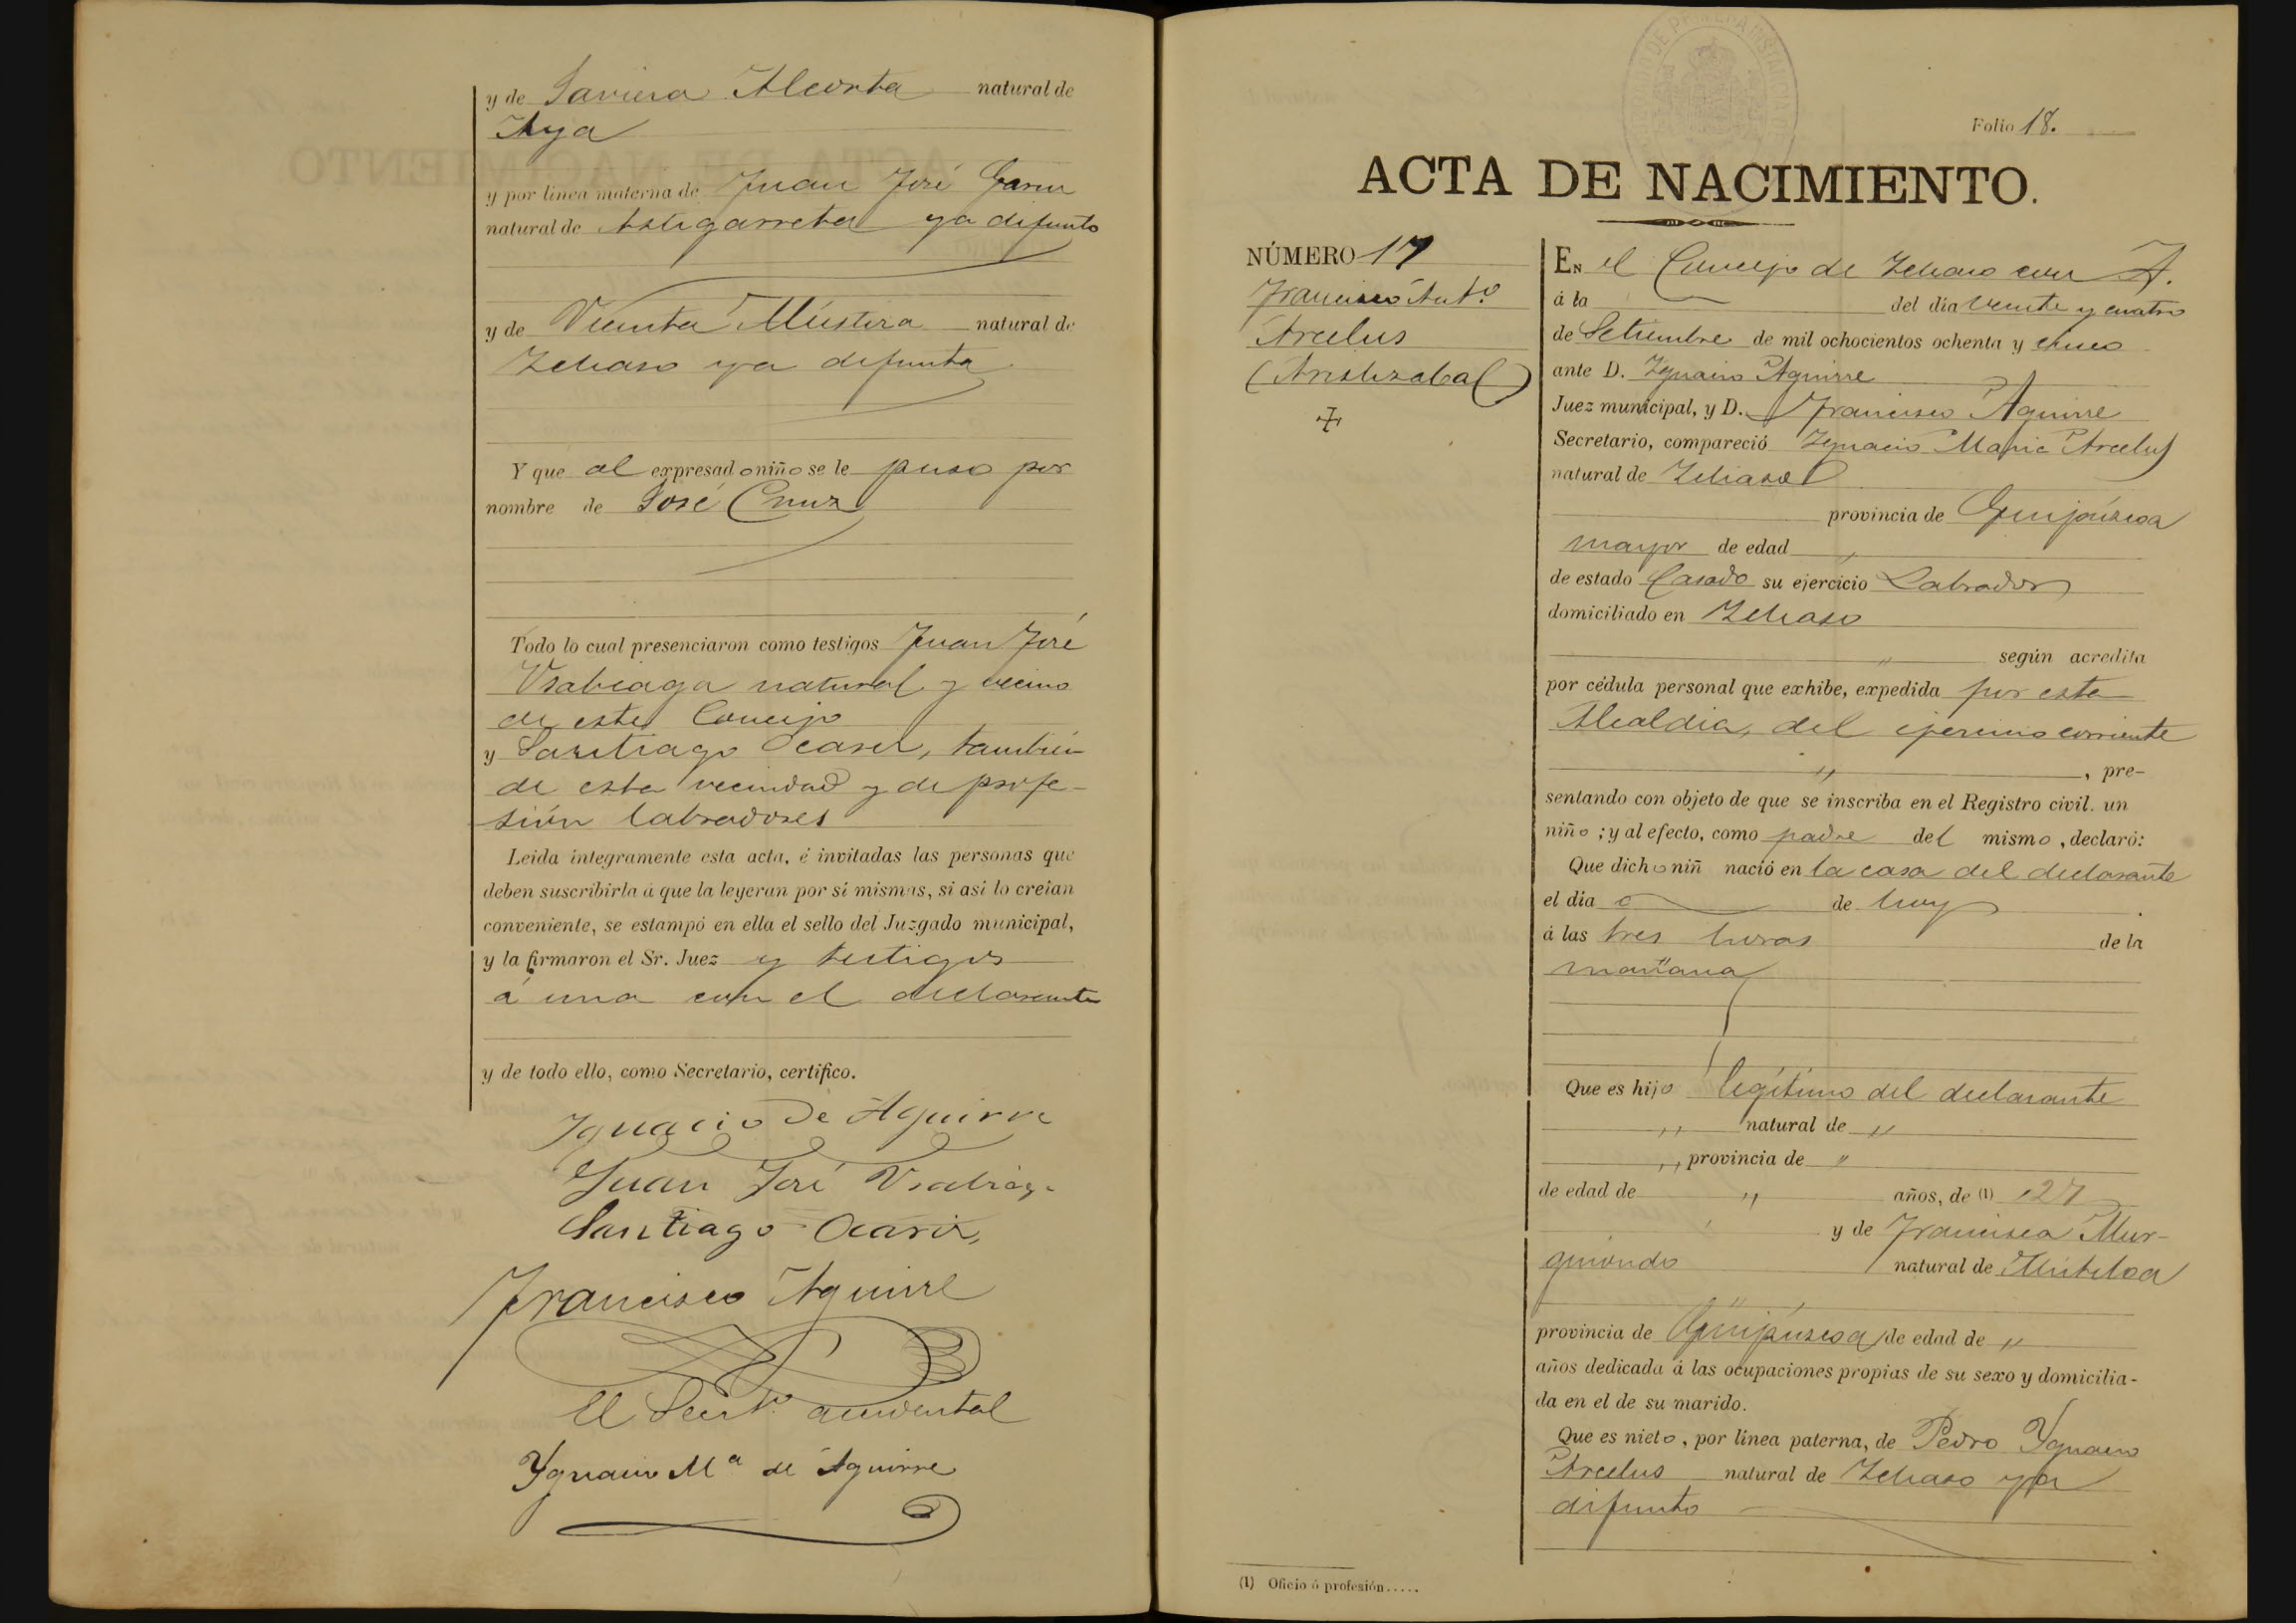 y de Saviera Alcorta natural de
Aya
y por línea materna de Juan José Garin
natural de Astigarreta ya difunto
y de Vicenta Múxtira natural de
Ichaso ya difunta
Y que al expresado niño se le puso por
nombre de José Cruz
Todo lo cual presenciaron como testigos Juan José
Usabiaga natural y vecino
de este Concejo
y Santiago Ocariz, también
de esta vecindad y de profe-
sión labradores
Leida íntegramente esta acta, é invitadas las personas que
deben suscribirla á que la leyeran por sí mismas, si así lo creían
conveniente, se estampó en ella el sello del Juzgado municipal,
y la firmaron el Sr. Juez y testigos
á una con el declarante
y de todo ello, como Secretario, certifico.
Ignacio de Aguirre
Juan José Usabiaga
Santiago Ocariz,
Francisco Aguirre
El Secret.º accidental
Ygnacio Mª de Aguirre
Folio 18.
ACTA DE NACIMIENTO.
NÚMERO 17
Francisco Ant.º
Arcelus
(Aristizabal)
EN el Concejo de Ichaso con A.
á la del día veinte y cuatro
de Setiembre de mil ochocientos ochenta y cinco
ante D. Ignacio Aguirre
Juez municipal, y D. Francisco Aguirre
Secretario, compareció Ignacio Maria Arcelus
natural de Ichaso
provincia de Guipúzcoa
mayor de edad "
de estado Casado su ejercicio Labrador
domiciliado en Ichaso
" según acredita
por cédula personal que exhibe, expedida por esta
Alcaldia, del ejercicio corriente
" , pre-
sentando con objeto de que se inscriba en el Registro civil. un
niño ; y al efecto, como padre del mismo, declaró:
Que dicho niñ nació en la casa del declarante
el día de hoy
á las tres horas de la
mañana
Que es hijo legítimo del declarante
" natural de "
" provincia de "
de edad de " años, de (1) 27
y de Francisca Mur-
guiondo natural de Mutiloa
provincia de Guipúzcoa de edad de "
años dedicada á las ocupaciones propias de su sexo y domicilia-
da en el de su marido.
Que es nieto, por línea paterna, de Pedro Ygnacio
Arcelus natural de Ichaso ya
difunto
(1) Oficio ó profesión.....